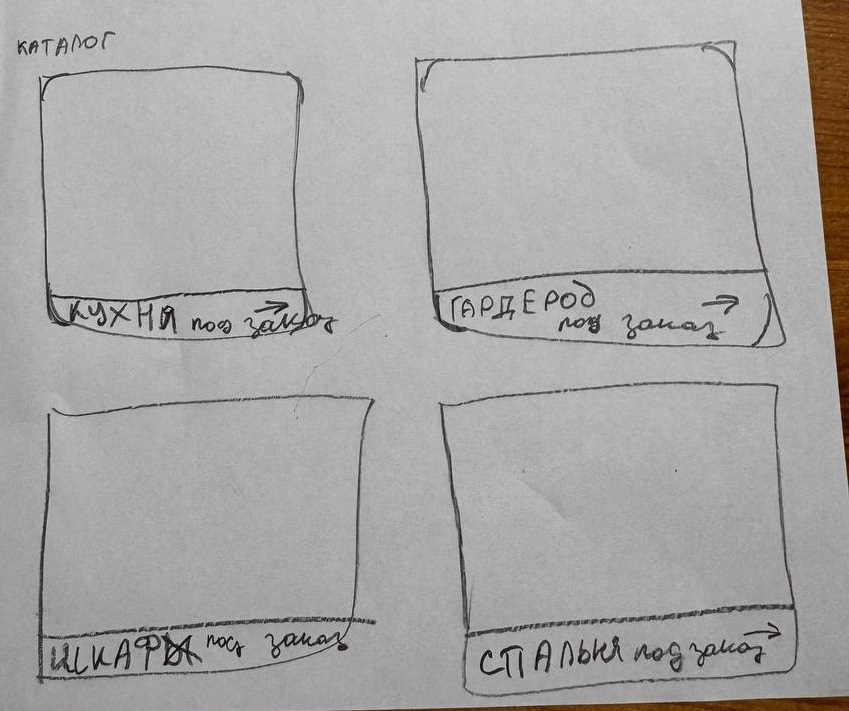 КАТАЛОГ
КУХНЯ под заказ →
ГАРДЕРОб →
под заказ
ШКАФ под заказ
СПАЛЬНЯ под заказ →